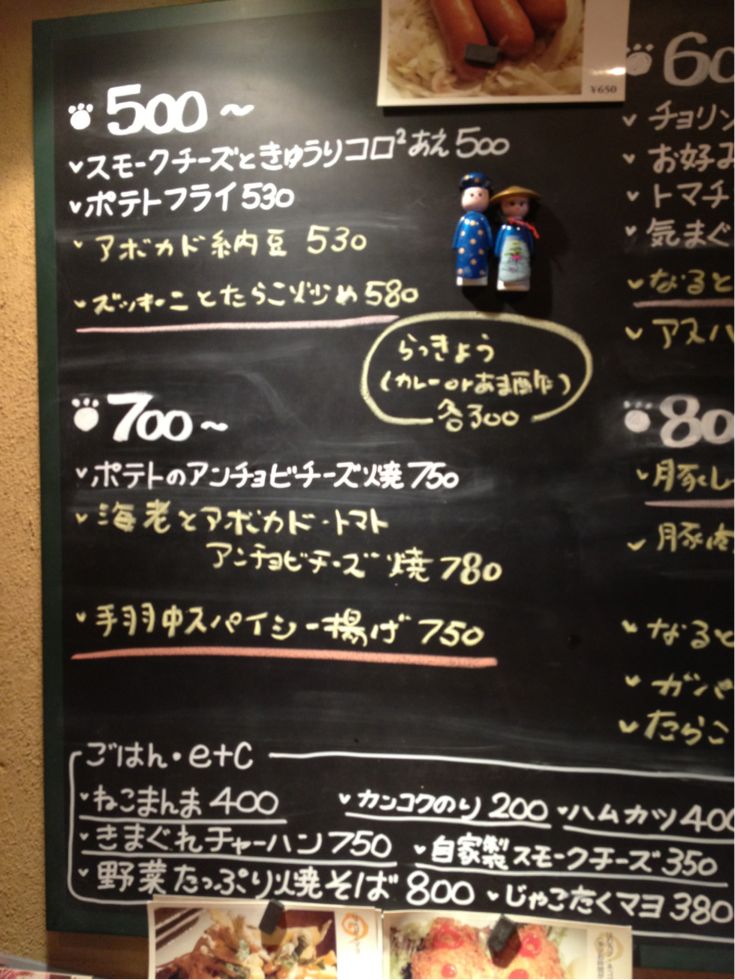 500～
スモークチーズときゅうりコロ²あえ 500
ポテトフライ 530
アボカド納豆 530
ズッキーニとたらこ炒め 580
らっきょう
(カレー or あま酢)
各300
700～
ポテトのアンチョビチーズ焼 750
海老とアボカド・トマト
アンチョビチーズ焼 780
手羽中スパイシー揚げ 750
¥650
60
チョリン
お好み
トマチ
気まぐ
なると
アスパ
80
豚し
豚肉
なると
ガーパ
たらこ
ごはん・etc
ねこまんま 400 カンコクのり 200 ハムカツ 400
きまぐれチャーハン 750 自家製スモークチーズ 350
野菜たっぷり焼そば 800 じゃこたくマヨ 380